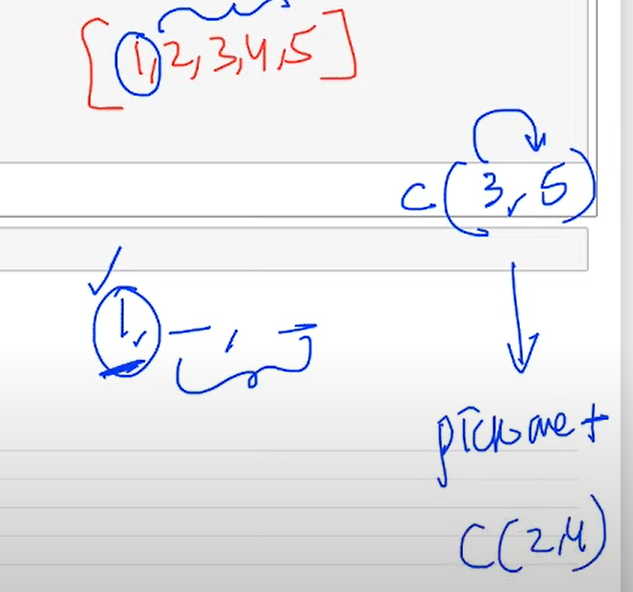 [1,2,3,4,5]
C(3,5)
1, _ , _
pick one +
C(2,4)